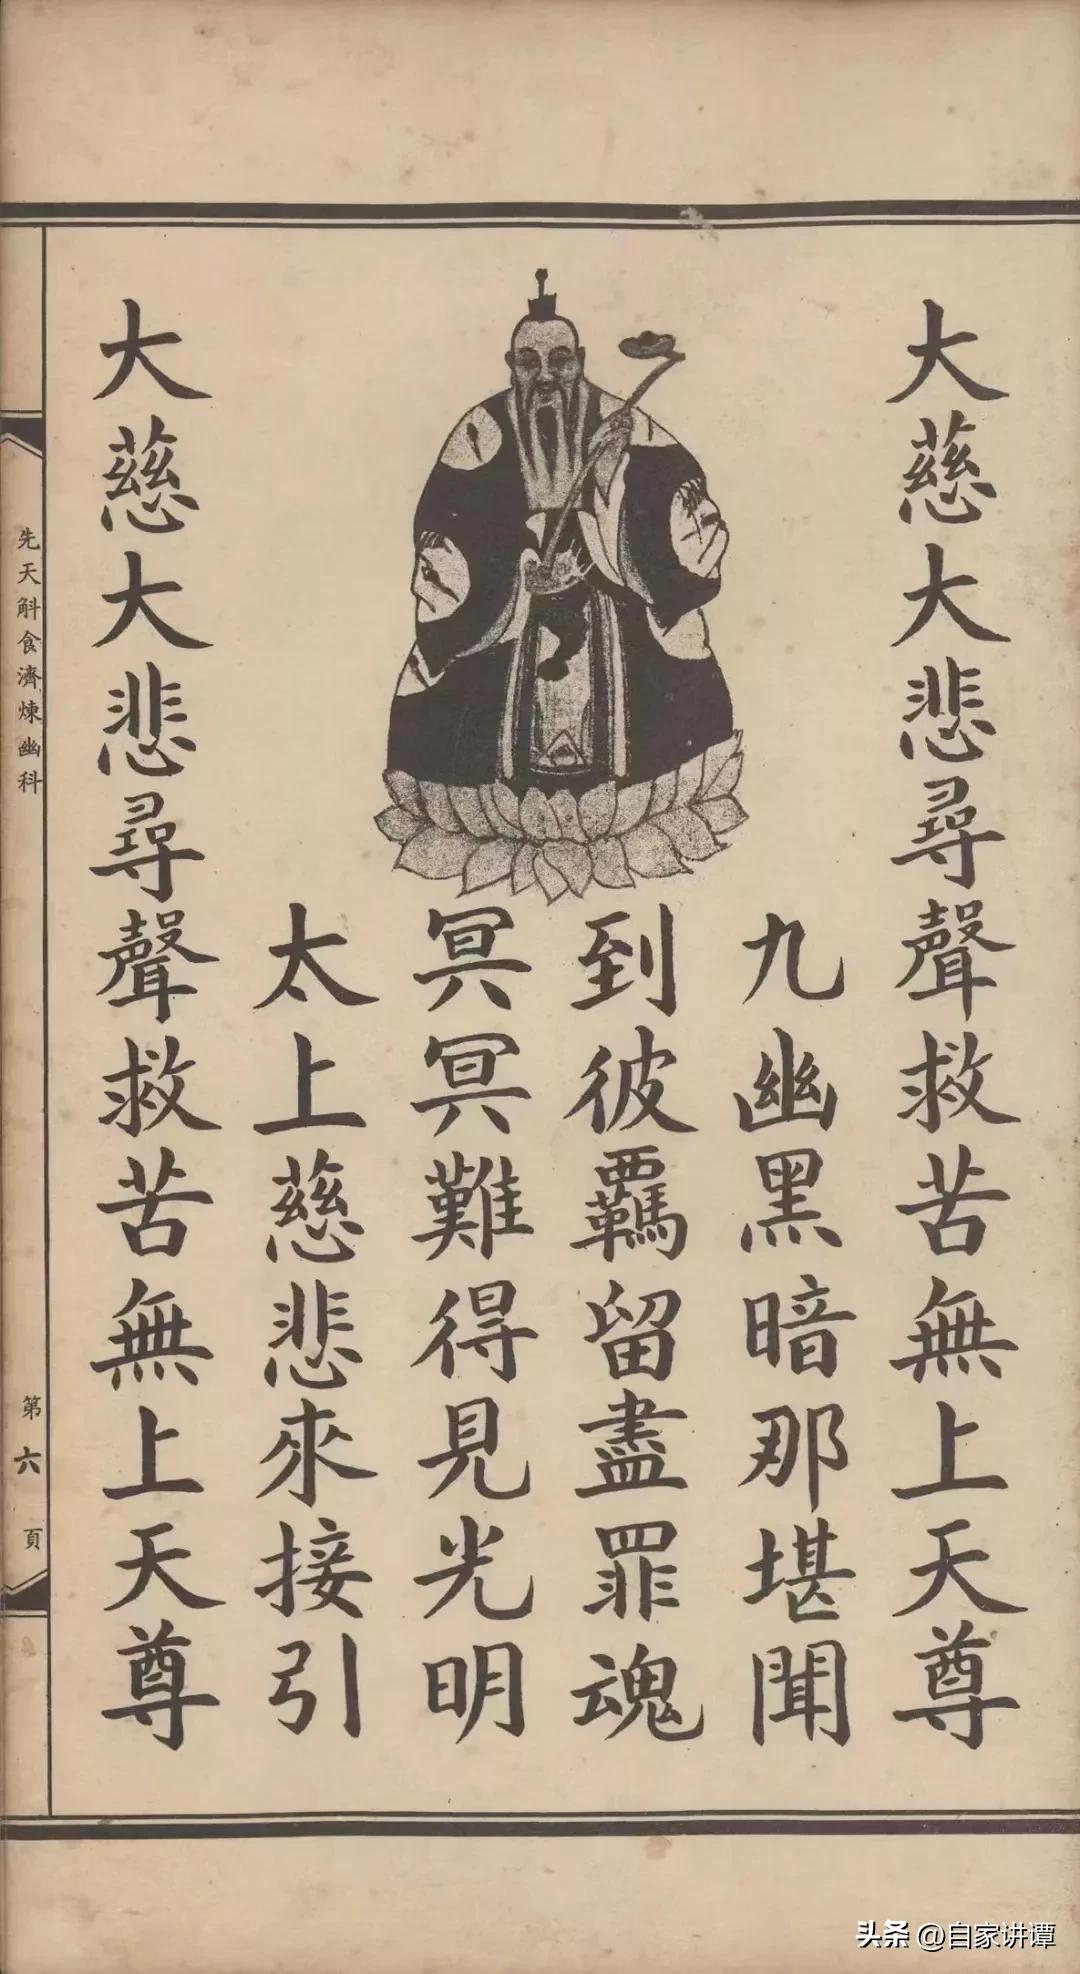 大慈大悲尋聲救苦無上天尊
九幽黑暗那堪聞
到彼羈留盡罪魂
冥冥難得見光明
太上慈悲來接引
大慈大悲尋聲救苦無上天尊
先天斛食濟煉幽科
第六頁
头条 @自家讲谭